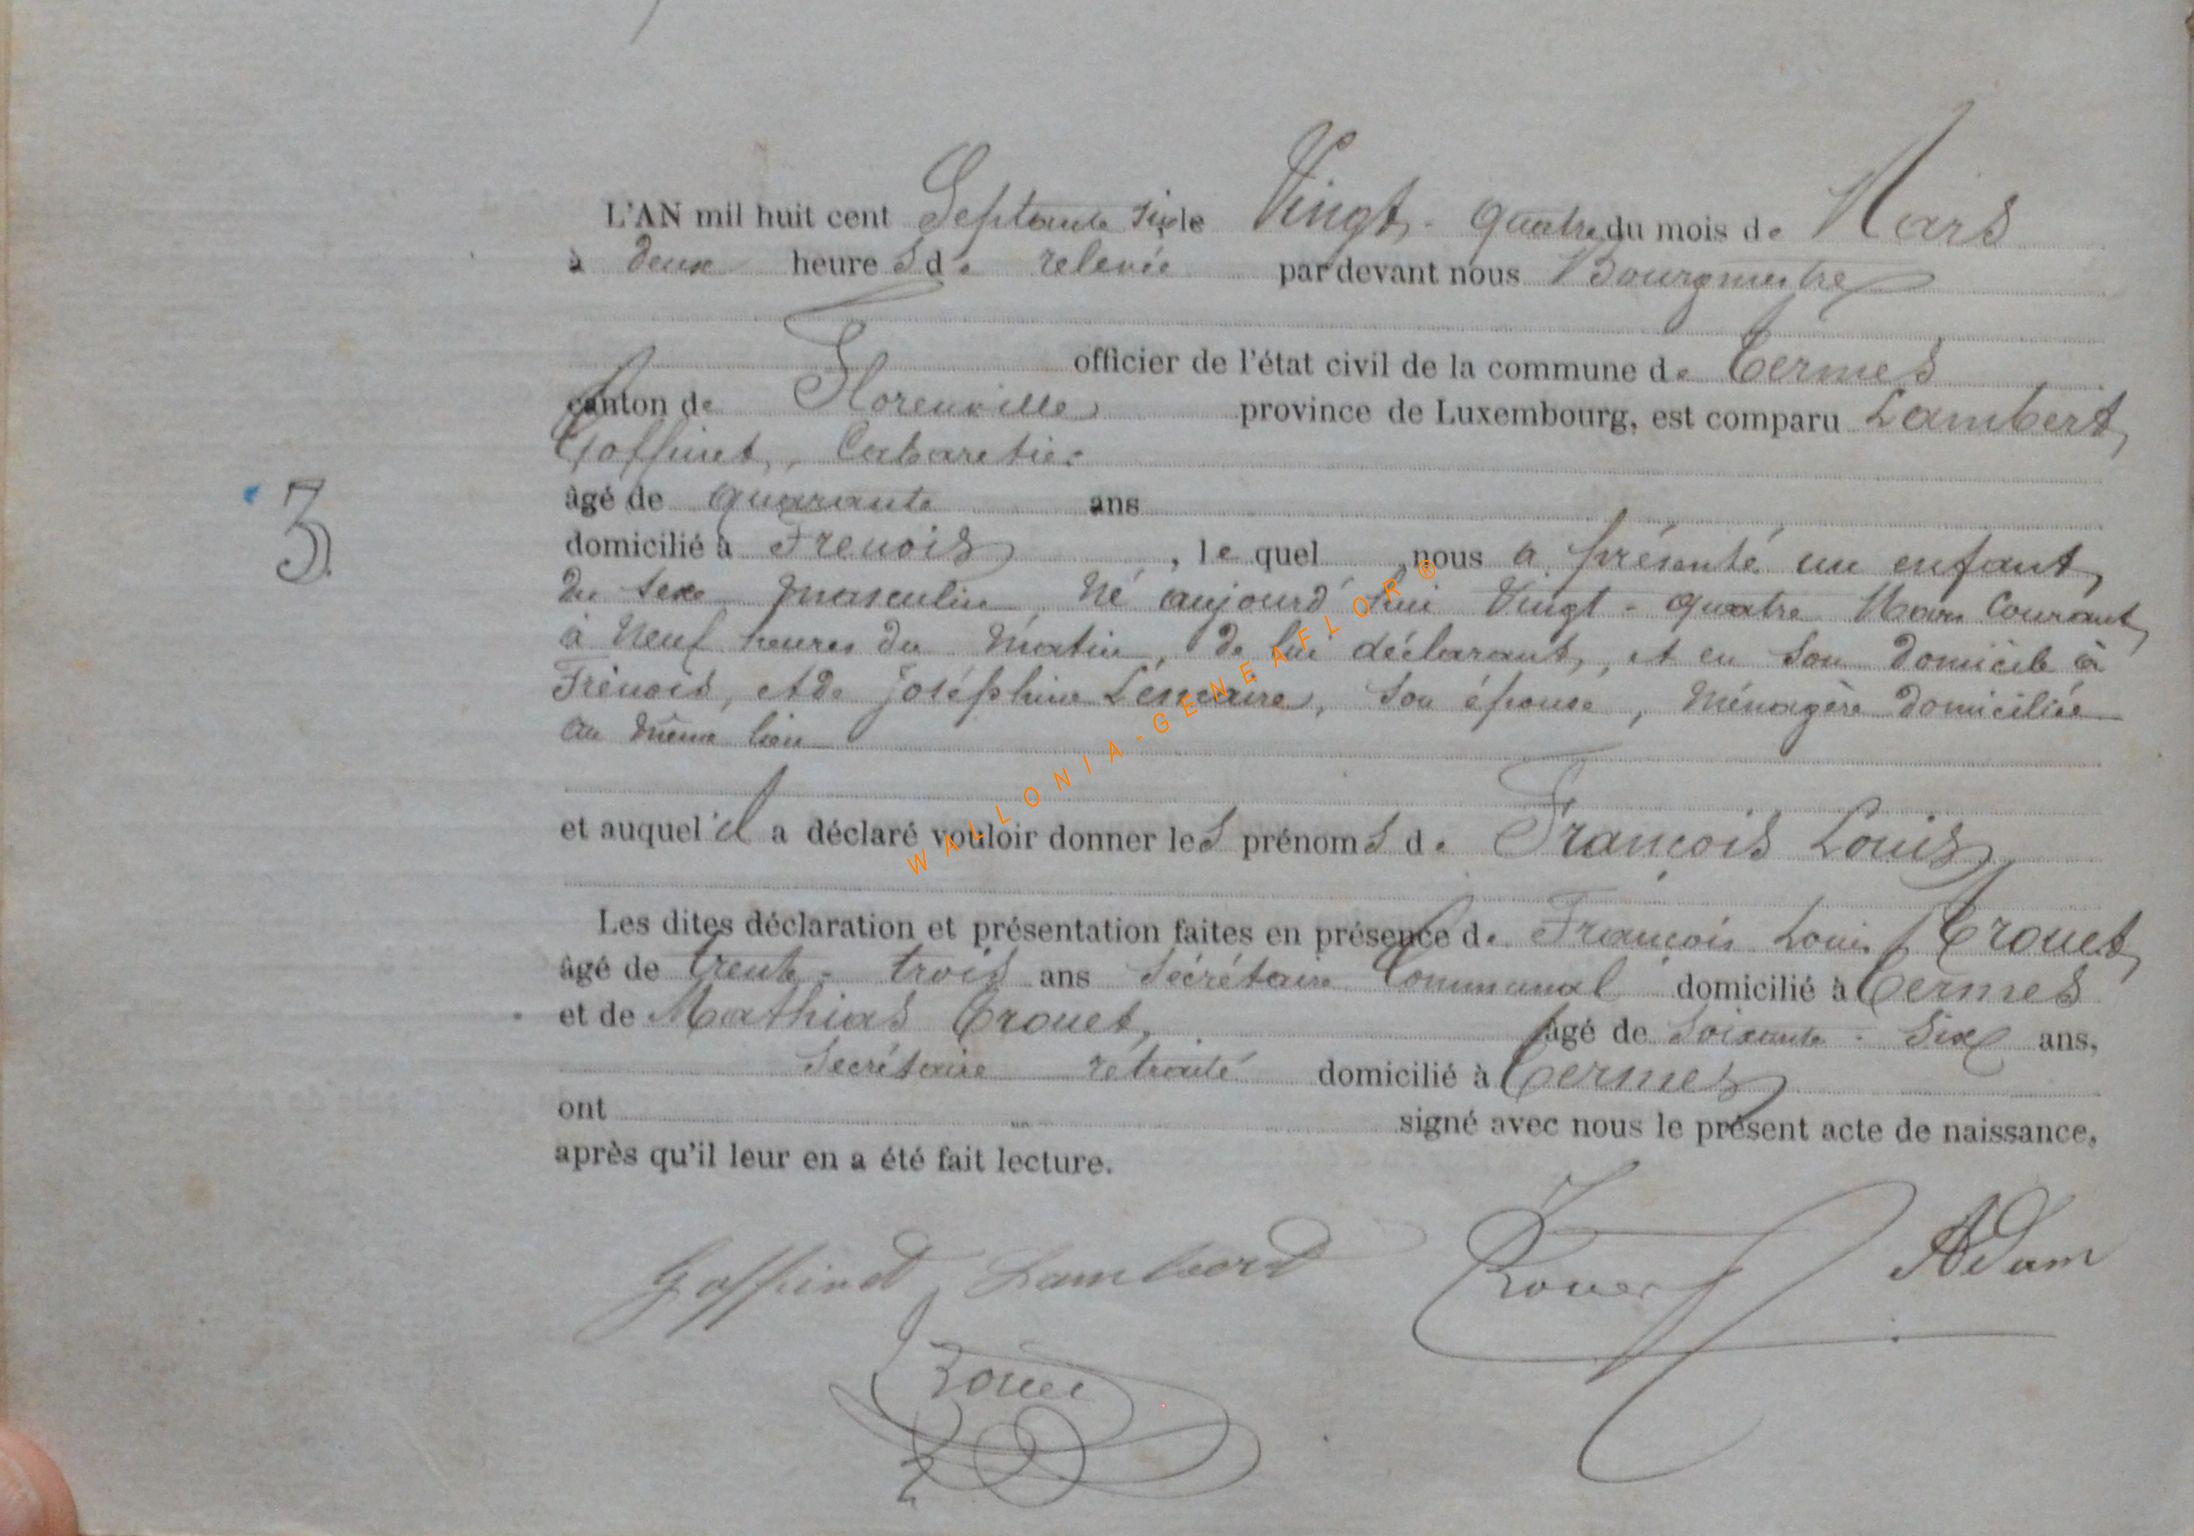 L'AN mil huit cent Septante six le Vingt-quatre du mois de Mars
à deux heures de relevée par devant nous Bourgmestre
officier de l'état civil de la commune de Termes
canton de Florenville province de Luxembourg, est comparu Lambert
Goffinet, Cabaretier
âgé de quarante ans
domicilié à Frenois, le quel nous a présenté un enfant
du sexe masculin, Né aujourd'hui Vingt-quatre Mars Courant
à Neuf heures du Matin, de lui déclarant, et en son domicile à
Frénois, et de Joséphine Lemaire, son épouse, Ménagère domiciliée
au même lieu
et auquel il a déclaré vouloir donner les prénoms de François Louis
Les dites déclaration et présentation faites en présence de François Louis Trouet
âgé de trente-trois ans Sécrétaire Communal domicilié à Termes
et de Mathias Trouet, âgé de Soixante-Six ans,
Secrétaire rétraité domicilié à Termes
ont signé avec nous le présent acte de naissance,
après qu'il leur en a été fait lecture.
3
Goffinet Lambert Trouet Adam
Trouet
WALLONIA-GENEAFLOR®